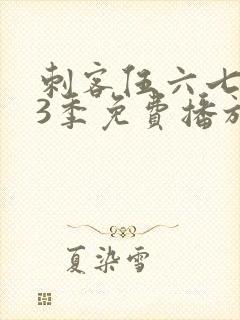 刺客伍六七
3季免費播放
夏染雪